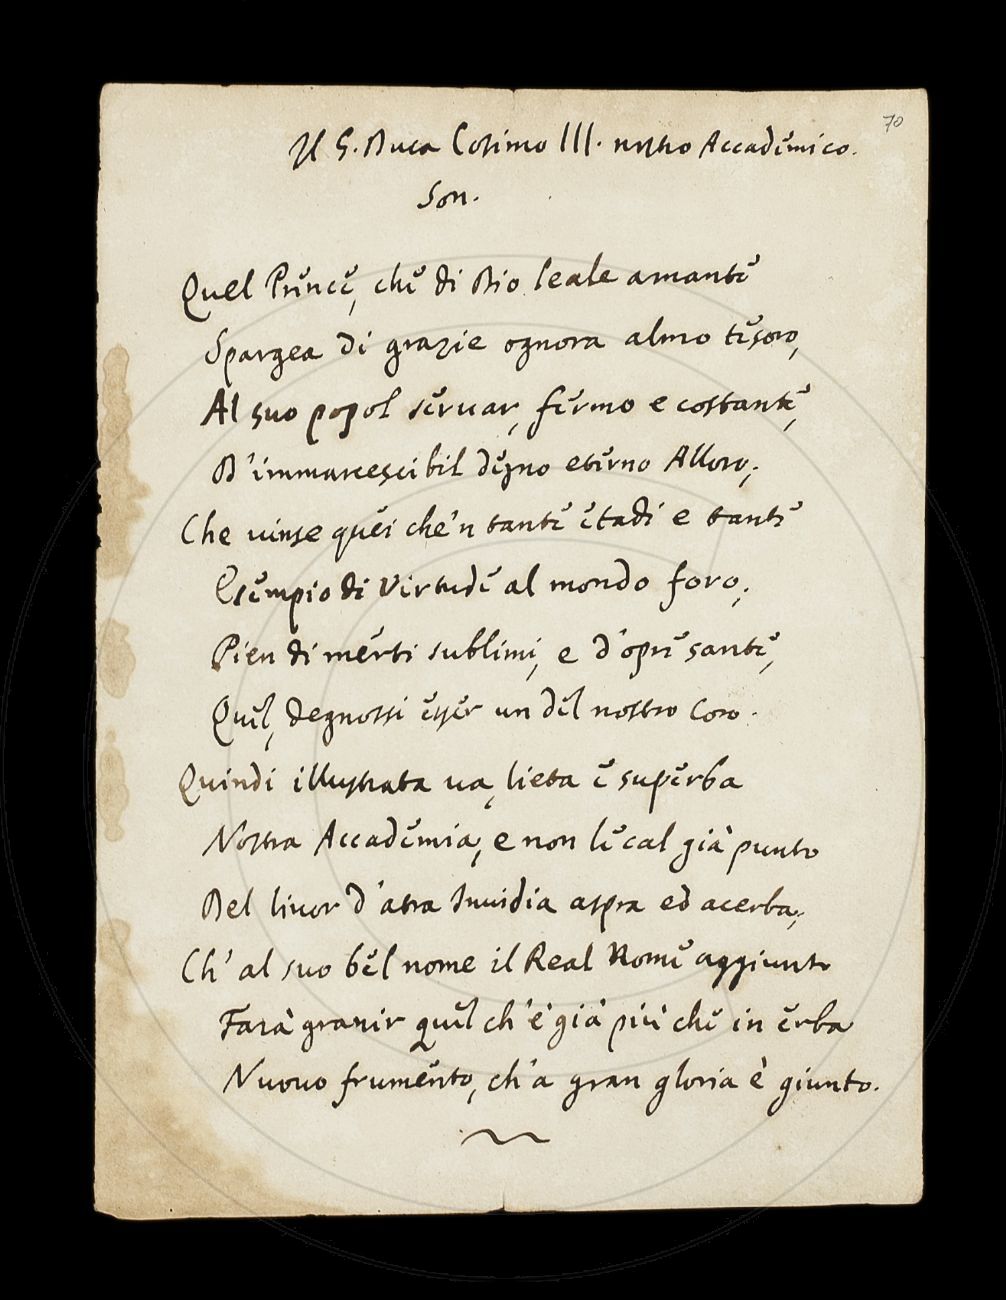 70
Il G. Duca Cosimo III. nostro Accademico.
Son.
Quel Prence, che di Dio leale amante
Spargea di grazie ognora almo tesoro,
Al suo popol servar, fermo e costante,
D'immarcescibil degno eterno Alloro;
Che vinse quei che'n tante etadi e tante
Esempio di Virtude al mondo foro;
Pien di merti sublimi, e d'opre sante,
Quel, degnossi esser un del nostro Coro.
Quindi illustrata va, lieta e superba
Nostra Accademia, e non le cal già punto
Del livor d'atra Invidia aspra ed acerba,
Ch' al suo bel nome il Real Nome aggiunto
Farà granir quel ch'è già più che in erba
Nuovo frumento, ch'a gran gloria è giunto.